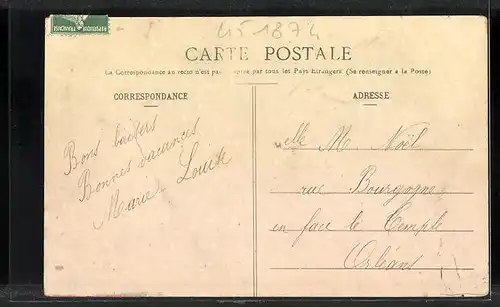 REPUBLIQUE FRANÇAISE
CARTE POSTALE
La Correspondance au recto n'est pas par tous les Pays Etrangers (Se renseigner à la Poste)
CORRESPONDANCE
Bons baisers
Bonnes vacances
Marie-Louise
ADRESSE
elle M. Noël
rue Bourgogne
en face le Temple
Orléans